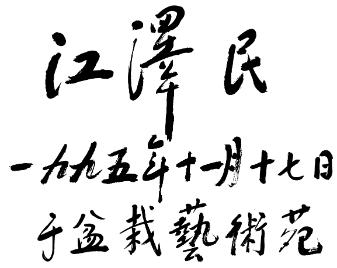 江澤民
一九九五年十一月十七日
于盆栽藝術苑